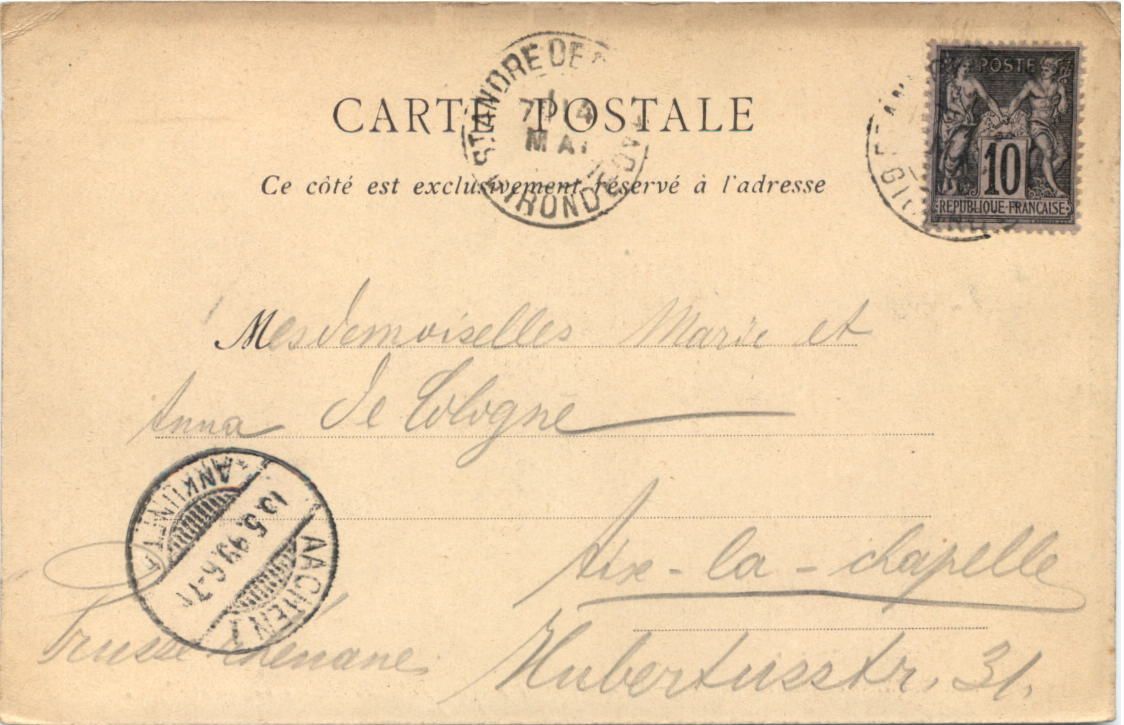 CARTE POSTALE
Ce côté est exclusivement réservé à l'adresse
ST ANDRE DE
14
MAI
GIRONDE
POSTE
10
REPUBLIQUE FRANCAISE
Mesdemoiselles Marie et
Anna de Cologne
Aix-la-chapelle
Hubertusstr. 31.
Prusse rhénane
ANKUNFT
5.99.6-7
AACHEN 1